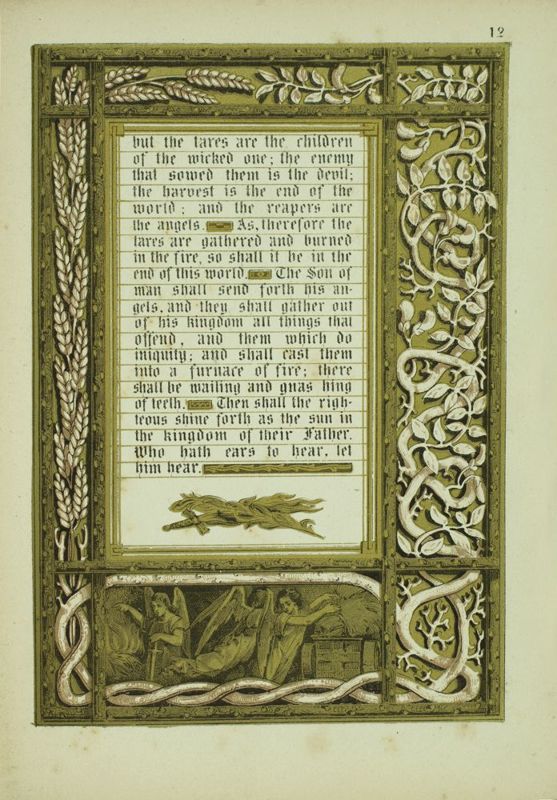 12
but the tares are the children
of the wicked one; the enemy
that sowed them is the devil;
the harvest is the end of the
world; and the reapers are
the angels. As, therefore the
tares are gathered and burned
in the fire, so shall it be in the
end of this world. The Son of
man shall send forth his an-
gels, and they shall gather out
of his kingdom all things that
offend, and them which do
iniquity; and shall cast them
into a furnace of fire; there
shall be wailing and gnas hing
of teeth. Then shall the righ-
teous shine forth as the sun in
the kingdom of their Father.
Who hath ears to hear, let
him hear.